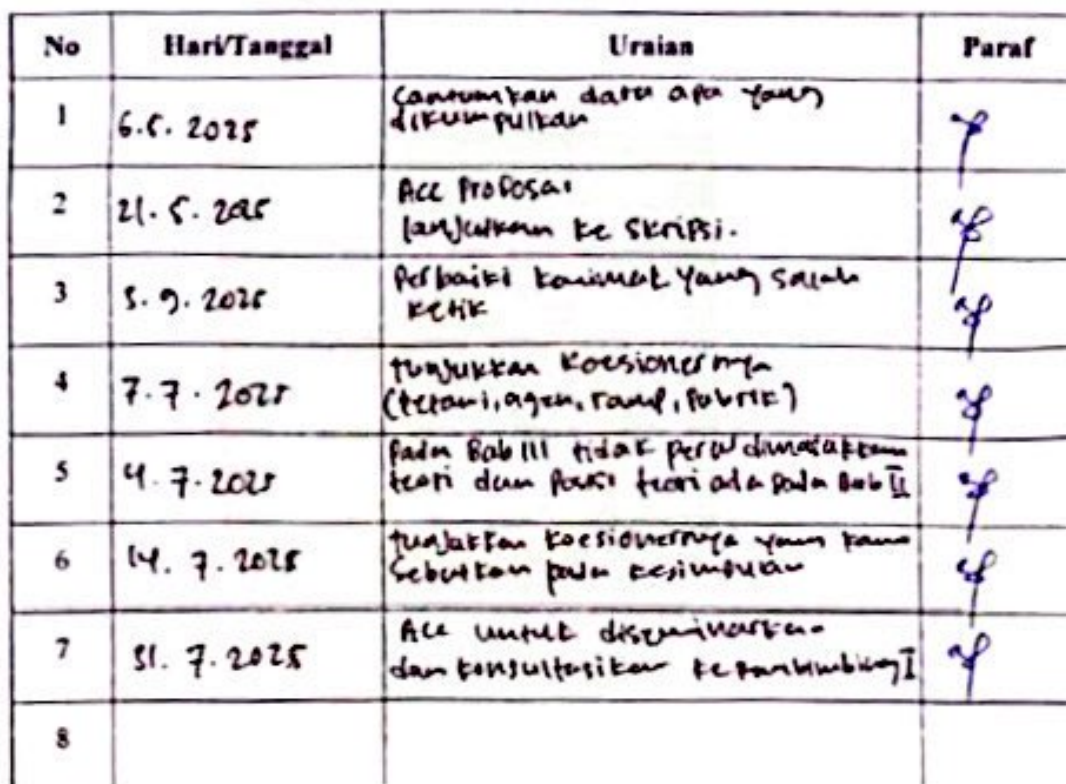 No Hari/Tanggal Uraian Paraf
1 6.5. 2025 Cantumkan data apa yang
dikumpulkan
2 21. 5. 2025 Acc Proposal
lanjutkan ke Skripsi.
3 2025 Perbaiki kalimat yang salah
ketik
4 7. 7. 2025 tunjukkan koesionernya
(petani, agen, ramp, Pabrik)
5 4. 7. 2025 Pada Bab III tidak perlu dimasukkan
teori dan teori ada pada Bab II
6 14. 7. 2025 tunjukkan koesionernya yang kamu
sebutkan pada kesimpulan
7 31. 7. 2025 Acc untuk diseminarkan
dan konsultasikan ke Pembimbing I
8